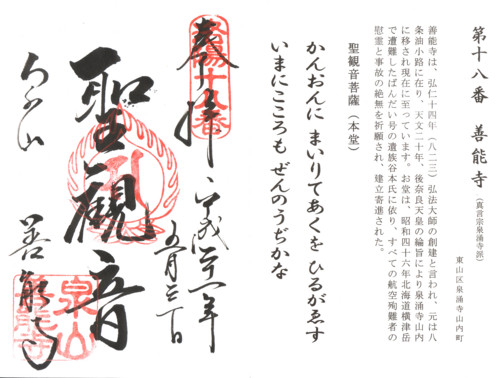 第十八番 善能寺(真言宗泉涌寺派)
東山区泉涌寺山内町
善能寺は、弘仁十四年(八二三)弘法大師の創建と言われ、元は八
条油小路に在り、天文二十年、後奈良天皇の綸旨により泉涌寺山内
に移され現在に至っています。お堂は、昭和四十六年北海道横津岳
で遭難したばんだい号の遺族谷本氏に依り、すべての航空殉難者の
慰霊と事故の絶無を祈願され、建立寄進された。
聖観音菩薩(本堂)
かんおんに まいりてあくを ひるがゑす
いまにこころも ぜんのうぢかな
十八番
奉拝
平成 年
五月 日
聖觀音
善能寺
泉山
善能寺